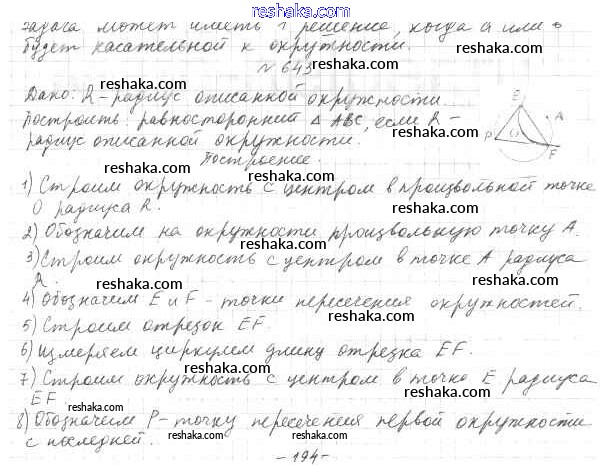 www.reshaka.com
задача может иметь 1 решение, когда a или b
reshaka.com
будет касательной к окружности.
reshaka.com
№ 643
reshaka.com
Дано: R - радиус описанной окружности.
Построить: равносторонний △ ABC, если R -
радиус описанной окружности.
reshaka.com
Построение.
E
A
O
P
F
1) Строим окружность с центром в произвольной точке
O радиуса R.
reshaka.com
2) Обозначим на окружности произвольную точку A.
reshaka.com
3) Строим окружность с центром в точке A радиуса
R.
reshaka.com
4) Обозначим E и F - точки пересечения окружностей.
reshaka.com
5) Строим отрезок EF.
reshaka.com
6) Измеряем циркулем длину отрезка EF.
reshaka.com
7) Строим окружность с центром в точке E радиуса
EF.
reshaka.com
8) Обозначим P - точку пересечения первой окружности
с последней.
reshaka.com
- 194 -